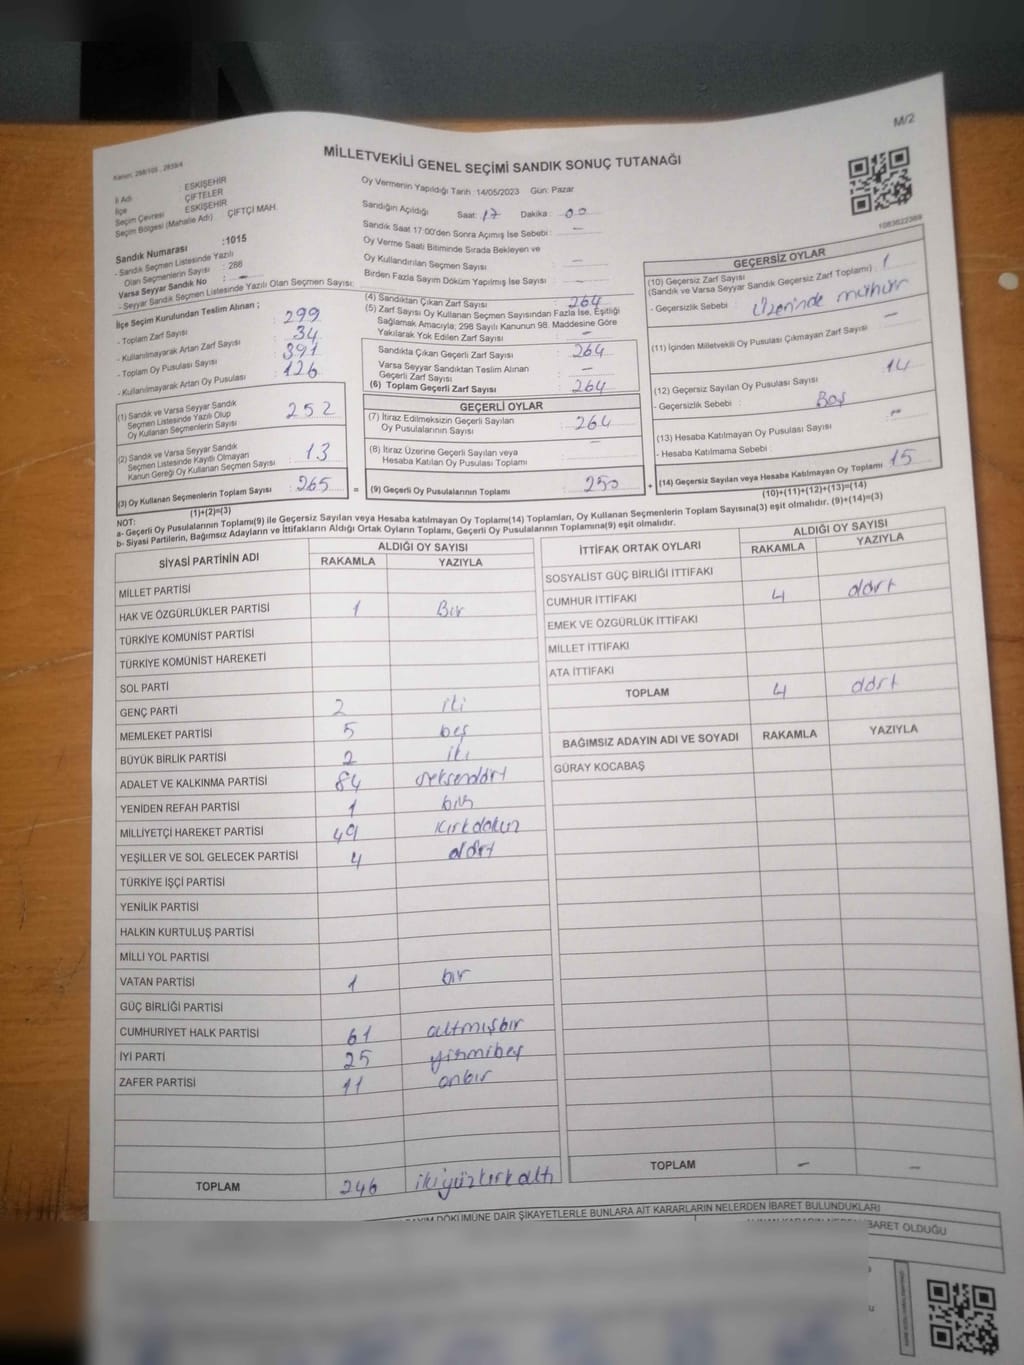 M/2
Kanun: 298/105 , 2839/4
MİLLETVEKİLİ GENEL SEÇİMİ SANDIK SONUÇ TUTANAĞI
1083622369
İl Adı : ESKİŞEHİR
İlçe : ÇİFTELER
Seçim Çevresi : ESKİŞEHİR
Seçim Bölgesi (Mahalle Adı) : ÇİFTÇİ MAH.
Sandık Numarası : 1015
- Sandık Seçmen Listesinde Yazılı
Olan Seçmenlerin Sayısı : 288
Varsa Seyyar Sandık No : -
- Seyyar Sandık Seçmen Listesinde Yazılı Olan Seçmen Sayısı:
Oy Vermenin Yapıldığı Tarih 14/05/2023 Gün: Pazar
Sandığın Açıldığı Saat: 17 Dakika : 00
Sandık Saat 17:00'den Sonra Açımış İse Sebebi : -
Oy Verme Saati Bitiminde Sırada Bekleyen ve
Oy Kullandırılan Seçmen Sayısı : -
Birden Fazla Sayım Döküm Yapılmış İse Sayısı : -
İlçe Seçim Kurulundan Teslim Alınan ;
- Toplam Zarf Sayısı : 299
- Kullanılmayarak Artan Zarf Sayısı : 34
- Toplam Oy Pusulası Sayısı : 391
- Kullanılmayarak Artan Oy Pusulası : 126
(1) Sandık ve Varsa Seyyar Sandık
Seçmen Listesinde Yazılı Olup
Oy Kullanan Seçmenlerin Sayısı : 252
(2) Sandık ve Varsa Seyyar Sandık
Seçmen Listesinde Kayıtlı Olmayan
Kanun Gereği Oy Kullanan Seçmen Sayısı : 13
(3) Oy Kullanan Seçmenlerin Toplam Sayısı : 265
(1)+(2)=(3)
(4) Sandıktan Çıkan Zarf Sayısı : 264
(5) Zarf Sayısı Oy Kullanan Seçmen Sayısından Fazla İse, Eşitliği
Sağlamak Amacıyla; 298 Sayılı Kanunun 98. Maddesine Göre
Yakılarak Yok Edilen Zarf Sayısı : -
Sandıkta Çıkan Geçerli Zarf Sayısı : 264
Varsa Seyyar Sandıktan Teslim Alınan
Geçerli Zarf Sayısı : -
(6) Toplam Geçerli Zarf Sayısı : 264
GEÇERLİ OYLAR
(7) İtiraz Edilmeksizin Geçerli Sayılan
Oy Pusulalarının Sayısı : 264
(8) İtiraz Üzerine Geçerli Sayılan veya
Hesaba Katılan Oy Pusulası Toplamı : -
= (9) Geçerli Oy Pusulalarının Toplamı : 250
GEÇERSİZ OYLAR
(10) Geçersiz Zarf Sayısı
(Sandık ve Varsa Seyyar Sandık Geçersiz Zarf Toplamı) : 1
- Geçersiz Sebebi : Üzerinde mühür
(11) İçinden Milletvekili Oy Pusulası Çıkmayan Zarf Sayısı : -
(12) Geçersiz Sayılan Oy Pusulası Sayısı : 14
- Geçersizlik Sebebi : Boş
(13) Hesaba Katılmayan Oy Pusulası Sayısı : -
- Hesaba Katılmama Sebebi :
+ (14) Geçersiz Sayılan veya Hesaba Katılmayan Oy Toplamı : 15
(10)+(11)+(12)+(13)=(14)
NOT:
a- Geçerli Oy Pusulalarının Toplamı(9) ile Geçersiz Sayılan veya Hesaba katılmayan Oy Toplamı(14) Toplamları, Oy Kullanan Seçmenlerin Toplam Sayısına(3) eşit olmalıdır. (9)+(14)=(3)
b- Siyasi Partilerin, Bağımsız Adayların ve İttifakların Aldığı Ortak Oyların Toplamı, Geçerli Oy Pusulalarının Toplamına(9) eşit olmalıdır.
SİYASİ PARTİNİN ADI ALDIĞI OY SAYISI
RAKAMLA YAZIYLA
MİLLET PARTİSİ
HAK VE ÖZGÜRLÜKLER PARTİSİ 1 Bir
TÜRKİYE KOMÜNİST PARTİSİ
TÜRKİYE KOMÜNİST HAREKETİ
SOL PARTİ
GENÇ PARTİ 2 iki
MEMLEKET PARTİSİ 5 beş
BÜYÜK BİRLİK PARTİSİ 2 iki
ADALET VE KALKINMA PARTİSİ 84 seksendört
YENİDEN REFAH PARTİSİ 1 bir
MİLLİYETÇİ HAREKET PARTİSİ 49 kırkdokuz
YEŞİLLER VE SOL GELECEK PARTİSİ 4 dört
TÜRKİYE İŞÇİ PARTİSİ
YENİLİK PARTİSİ
HALKIN KURTULUŞ PARTİSİ
MİLLİ YOL PARTİSİ
VATAN PARTİSİ 1 bir
GÜÇ BİRLİĞİ PARTİSİ
CUMHURİYET HALK PARTİSİ 61 altmışbir
İYİ PARTİ 25 yirmibeş
ZAFER PARTİSİ 11 onbir
TOPLAM 246 ikiyüzkırkaltı
İTTİFAK ORTAK OYLARI ALDIĞI OY SAYISI
RAKAMLA YAZIYLA
SOSYALİST GÜÇ BİRLİĞİ İTTİFAKI
CUMHUR İTTİFAKI 4 dört
EMEK VE ÖZGÜRLÜK İTTİFAKI
MİLLET İTTİFAKI
ATA İTTİFAKI
TOPLAM 4 dört
BAĞIMSIZ ADAYIN ADI VE SOYADI RAKAMLA YAZIYLA
GÜRAY KOCABAŞ
TOPLAM - -
SAYIM DÖKÜMÜNE DAİR ŞİKAYETLERLE BUNLARA AİT KARARLARIN NELERDEN İBARET BULUNDUKLARI
İBARET OLDUĞU